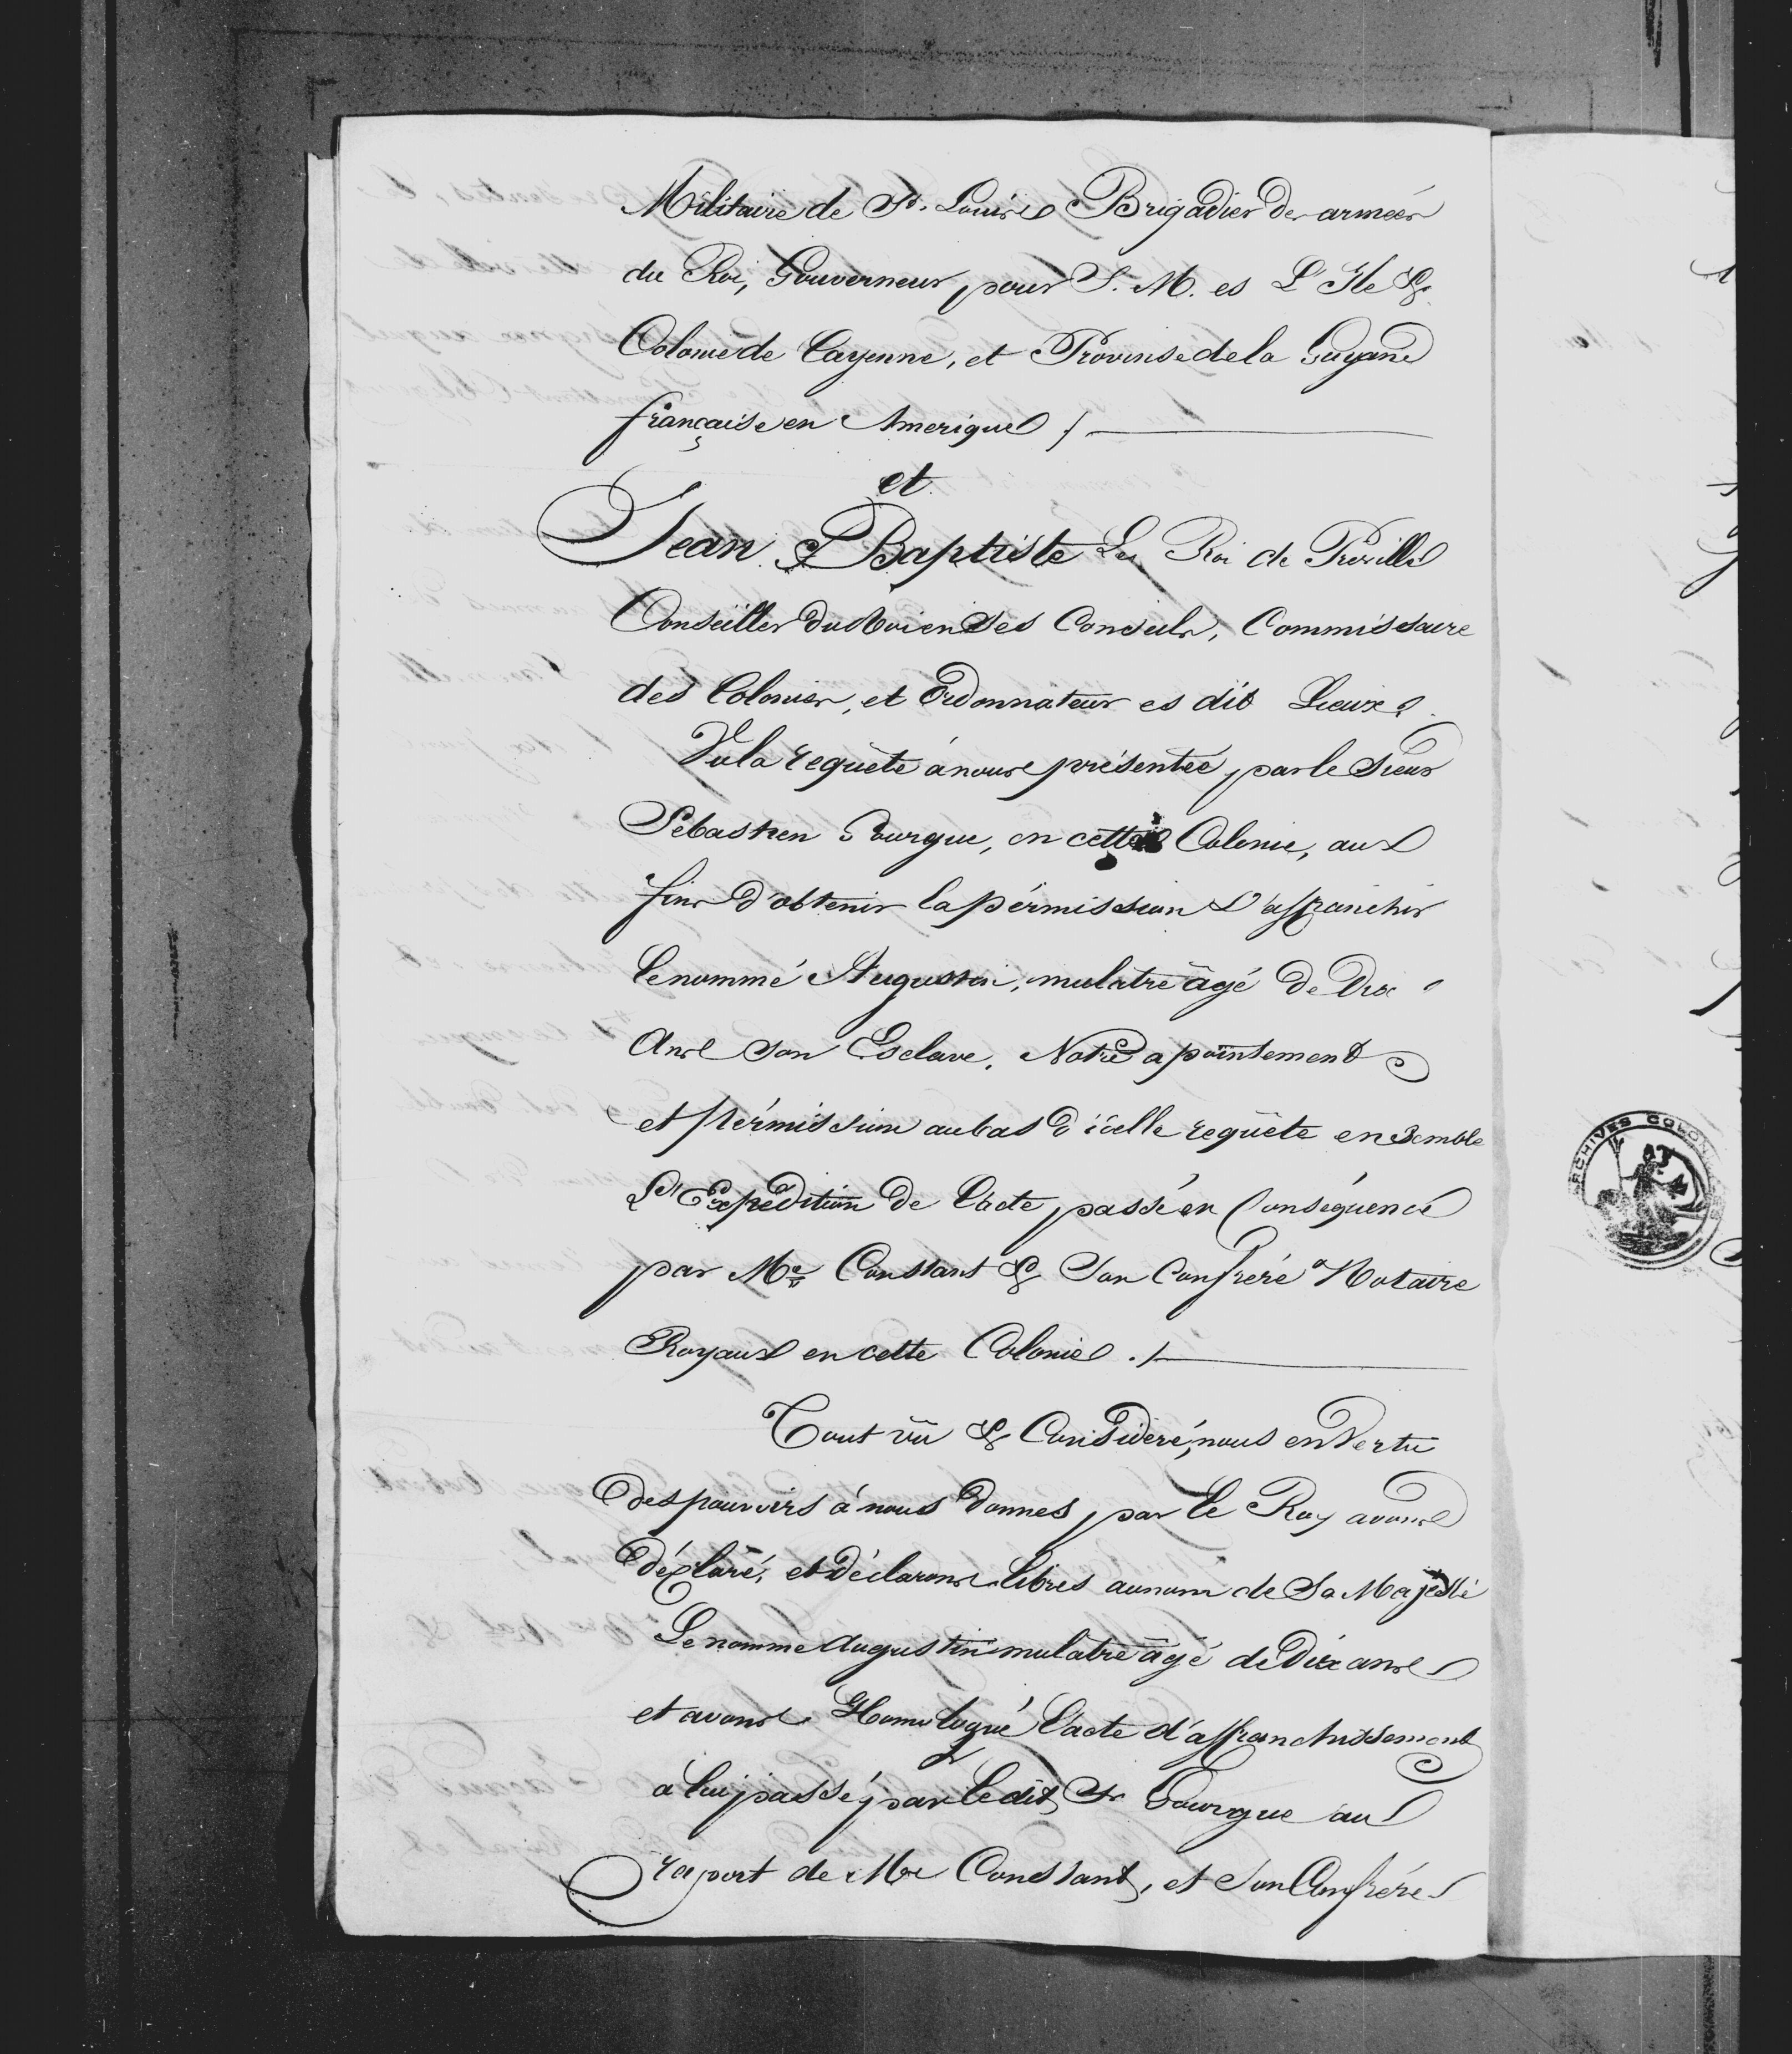 Militaire de St. Louis Brigadier des armées
du Roi, Gouverneur pour S. M. es L'Ile &
Colonie de Cayenne, et Provinse de la Guyane
française en Amerique /
et
Jean Baptiste Le Roi de Préville
Conseiller du Roi en Ses Conseils, Commissaire
des Colonies, et Ordonnateur es dit Lieux
Vu la requête à nous présentée par le Sieur
Sébastien Gourgue, en cette Colonie, aux
fins d'obtenir la pérmission D'affranchir
le nommé Augustin, mulatre âgé de Dix
Ans son Esclave. Notre apointement
et pérmission au bas d'icelle requête ensemble
L'Expédition de l'acte passé en Conséquence
par Me Constant & Son Confrére Notaire
Royaux en cette Colonie ./
Tout vû & Consideré, nous en Vertu
des pouvoirs à nous donnés par le Roy avons
déclaré, et déclarons libres au nom de Sa Majesté
Le nommé Augustin mulatre âgé de Dix ans
et avons Homologué l'acte d'affranchissement
a lui passé par le dit Sr Gourgue au
raport de Me Constant, et Son Confrére
ARCHIVES COLON